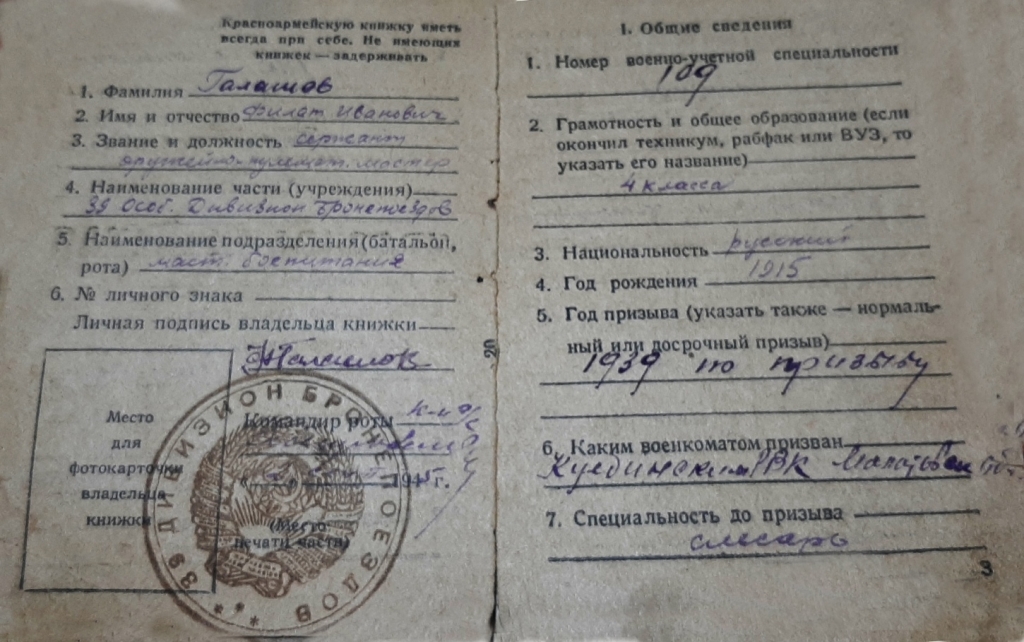 Красноармейскую книжку иметь
всегда при себе. Не имеющих
книжек — задерживать
1. Фамилия Галашов
2. Имя и отчество Филат Иванович
3. Звание и должность сержант
оружейно-пулемет. мастер
4. Наименование части (учреждения)
39 Особ. Дивизион Бронепоездов
5. Наименование подразделения (батальон,
рота) маст. боепитания
6. № личного знака
Личная подпись владельца книжки
Место
для
фотокарточки
владельца
книжки
Командир роты
194 г.
(Место
печати части)
39 ДИВИЗИОН БРОНЕПОЕЗДОВ
20
I. Общие сведения
1. Номер военно-учетной специальности
109
2. Грамотность и общее образование (если
окончил техникум, рабфак или ВУЗ, то
указать его название)
4 класса
3. Национальность русский
4. Год рождения 1915
5. Год призыва (указать также — нормаль-
ный или досрочный призыв)
1939 по призыву
6. Каким военкоматом призван
РВК
7. Специальность до призыва
слесарь
3